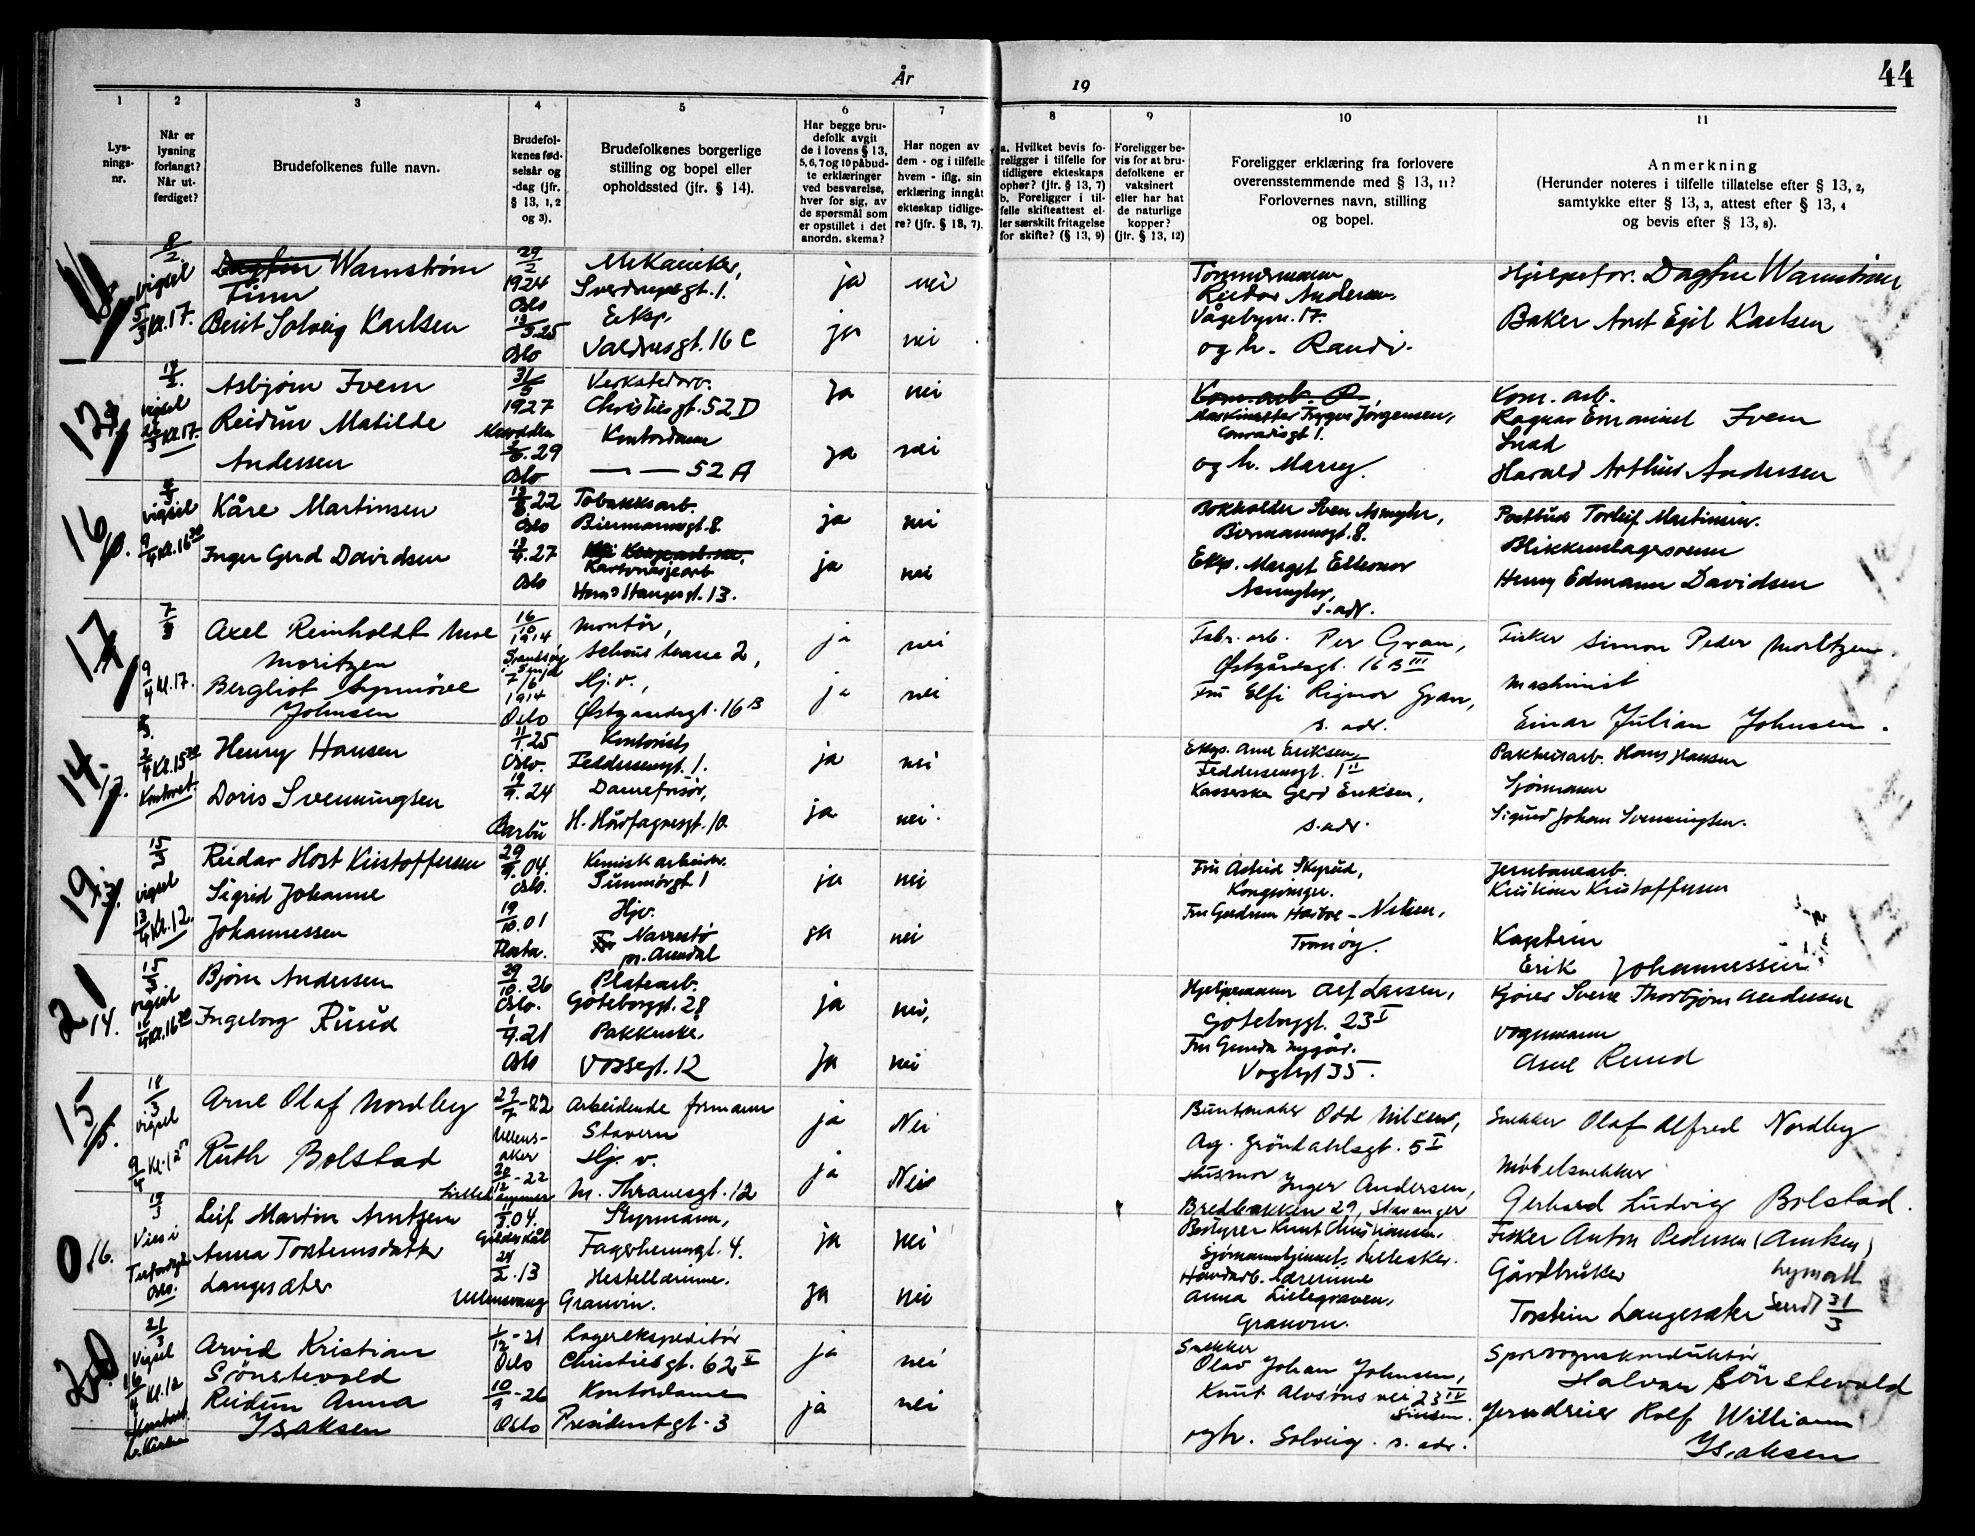 År
19
44
1
2
3
4
5
6
7
8
9
10
11
Lys-
nings-
nr.
Når er
lysning
forlangt?
Når ut-
ferdiget?
Brudefolkenes fulle navn.
Brudefol-
kenes fød-
selsår og
-dag (jfr.
§ 13, 1, 2
og 3).
Brudefolkenes borgerlige
stilling og bopel eller
opholdssted (jfr. § 14).
Har begge bru-
defolk avgit
de i lovens § 13,
5, 6, 7 og 10 påbud-
te erklæringer
ved besvarelse,
hver for sig, av
de spørsmål som
er opstillet i det
anordn. skema?
Har nogen av
dem - og i tilfelle
hvem - iflg. sin
erklæring inngått
ekteskap tidlige-
re? (jfr. § 13, 7).
a. Hvilket bevis fo-
religger i tilfelle for
tidligere ekteskaps
ophør? (jfr. § 13, 7)
b. Foreligger i til-
felle skifteattest el-
ler særskilt fritagelse
for skifte? (§ 13, 9)
Foreligger be-
vis for at bru-
defolkene er
vaksinert
eller har hat
de naturlige
kopper?
(jfr. § 13, 12)
Foreligger erklæring fra forlovere
overensstemmende med § 13, 11?
Forlovernes navn, stilling
og bopel.
Anmerkning
(Herunder noteres i tilfelle tillatelse efter § 13, 2,
samtykke efter § 13, 3, attest efter § 13, 4
og bevis efter § 13, 8).
8/2 vigsel 5/3 Kl. 17.
Dagfinn Warnstrøm
Finn
29/2 1924 Oslo
Mekaniker,
Sverdrupsgt. 1.
ja nei
Berit Solveig Karlsen
5.25 Oslo
Eksp.
Valdresgt. 16 C
ja nei
Tømmermann
Reidar Andersen
Vågebyn. 17.
og h. Randi.
Hjelpefor. Dagfin Warnstrøm
Baker Arnt Egil Karlsen
vigsel Kl. 17.
Asbjørn Ivem
31/5 1927
Verkstedarb.
Christiesgt. 52 D
ja nei
Reidun Matilde
Andersen
.29 Oslo
Kontordame
— — 52 A
ja nei
Trygve Jørgensen,
Conradisgt 1.
og h. Marry.
Kom. arb.
Ragnar Emanuel Ivem
Harald Arthur Andersen
16
vigsel 9/4 Kl. 16 30
Kåre Martinsen
22 Oslo
Tobakksarb.
Biermannsgt. 8.
ja nei
Inger Gerd Davidsen
27 Oslo
Kartonasjearb
Hans Stangesgt. 13.
ja nei
Bokholder Sven Asmyhr,
Biermannsgt. 8.
Eksp. Margit Elleonor
Asmyhr,
s. adr.
Postbud Torleif Martinsen.
Blikkenslagersvenn
Henry Edmann Davidsen
17
7/3
9/4 kl. 17.
Axel Reinholdt Moe
Moritzen
16/10 1914
Montør,
2,
ja nei
Bergliot Synnöve
Johnsen
7/6 1914 Oslo
Hj. v.,
Østgaardsgt. 16 B
ja nei
Fabr. arb. Per Gran,
Østgårdsgt. 16 B III
Fru Elfi Rigmor Gran,
s. adr.
Fisker Simon Peder Moritzen.
Maskinist
Einar Julian Johnsen.
14.
2/4 Kl. 15 30
Kontoret
Henry Hansen
25 Oslo.
Kontorist,
Feddersensgt. 1.
ja nei
Doris Svenningsen
.24 Barbu
Damefrisør,
H. Hårfagresgt. 10.
ja nei.
Eksp. Arne Eriksen,
Feddersensgt. 1 II
Kasserske Gerd Eriksen,
s. adr.
Pakkhusarb. Hans Hansen
Sjømann
Sigurd Johan Svenningsen.
19.
15/3 vigsel 13/4 Kl. 12.
Reidar Høst Kristoffersen
29/9.04. Oslo.
Kemisk arbeider.
Sunnmørgt. 1
ja nei
Sigrid Johanne
Johannessen
19/10.01
Hjv.
Narrestø
pr. Arendal
ja nei
Fru Astrid Skyrud,
Kongsvinger.
Fru Gudrun Hartoe - Nilsen,
Tromøy.
Jernbanearb.
Kristian Kristoffersen
Kaptein
Erik Johannessen
21
14.
15/3 vigsel Kl. 16 30
Bjørn Andersen
29/10.26 Oslo.
Platearb.
Göteborggt. 28
ja nei,
Ingeborg Ruud
.21 Oslo
Pakkerske.
Vossegt. 12
ja nei
Hjelpemann Alf Larsen,
Göteborggt. 23 I
Fru Gunda Nygår.
Vogtsgt 35.
Kjører Sverre Thorbjørn Andersen
Vognmann
Arne Ruud
15
18/3 vigsel 9/4 Kl. 12
Arne Olaf Nordby
29/7-22 Ullens-
aker
Arbeidende formann
Stavern
ja Nei
Ruth Bolstad
20/12-22 Lillehammer
Hj. v.
M. Thranesgt. 12
ja Nei
Buntmaker Odd Nilsen,
Ag. Gröndahlsgt. 5 I
Husmor Inger Andersen,
Bredbakken 29, Stavanger
Snekker Olaf Alfred Nordby
Møbelsnekker
Gerhard Ludvig Bolstad.
16.
19/3
Vies i
Oslo.
Leif Martin Arntzen
11/3.04. Gildeskål
Styrmann,
Fagerheimsgt. 4.
ja nei
Anna Torsteinsdatter
Langesæter
24/2.13
Ullensvang
Hestellærinne.
Granvin.
ja nei
Bestyrer Knut Christiansen,
Sjømannshjemmet, Lilleaker.
Håndarb. lærerinne
Anna Lillegraven,
Granvin.
Fisker Anton Pedersen (Arntsen)
Gårdbruker
Torstein Langesæter
Lysnatt
Sendt 31/3
20
21/3 vigsel 16/4 Kl. 12
Arvid Kristian
Sönstevold
1/12-21 Oslo
Lagerekspeditör
Christiesgt. 62 V
ja nei
Reidun Anna
Isaksen
10/9-26 Oslo
Kontordame
Presidentgt. 3
ja nei
Snekker
Olav Johan Johnsen,
Knut Alvsöns vei 23 IV
Sinsen.
og h. Solveig. s. adr.
Sporvognskonduktör
Halvar Sönstevold
Jerndreier Rolf William
Isaksen